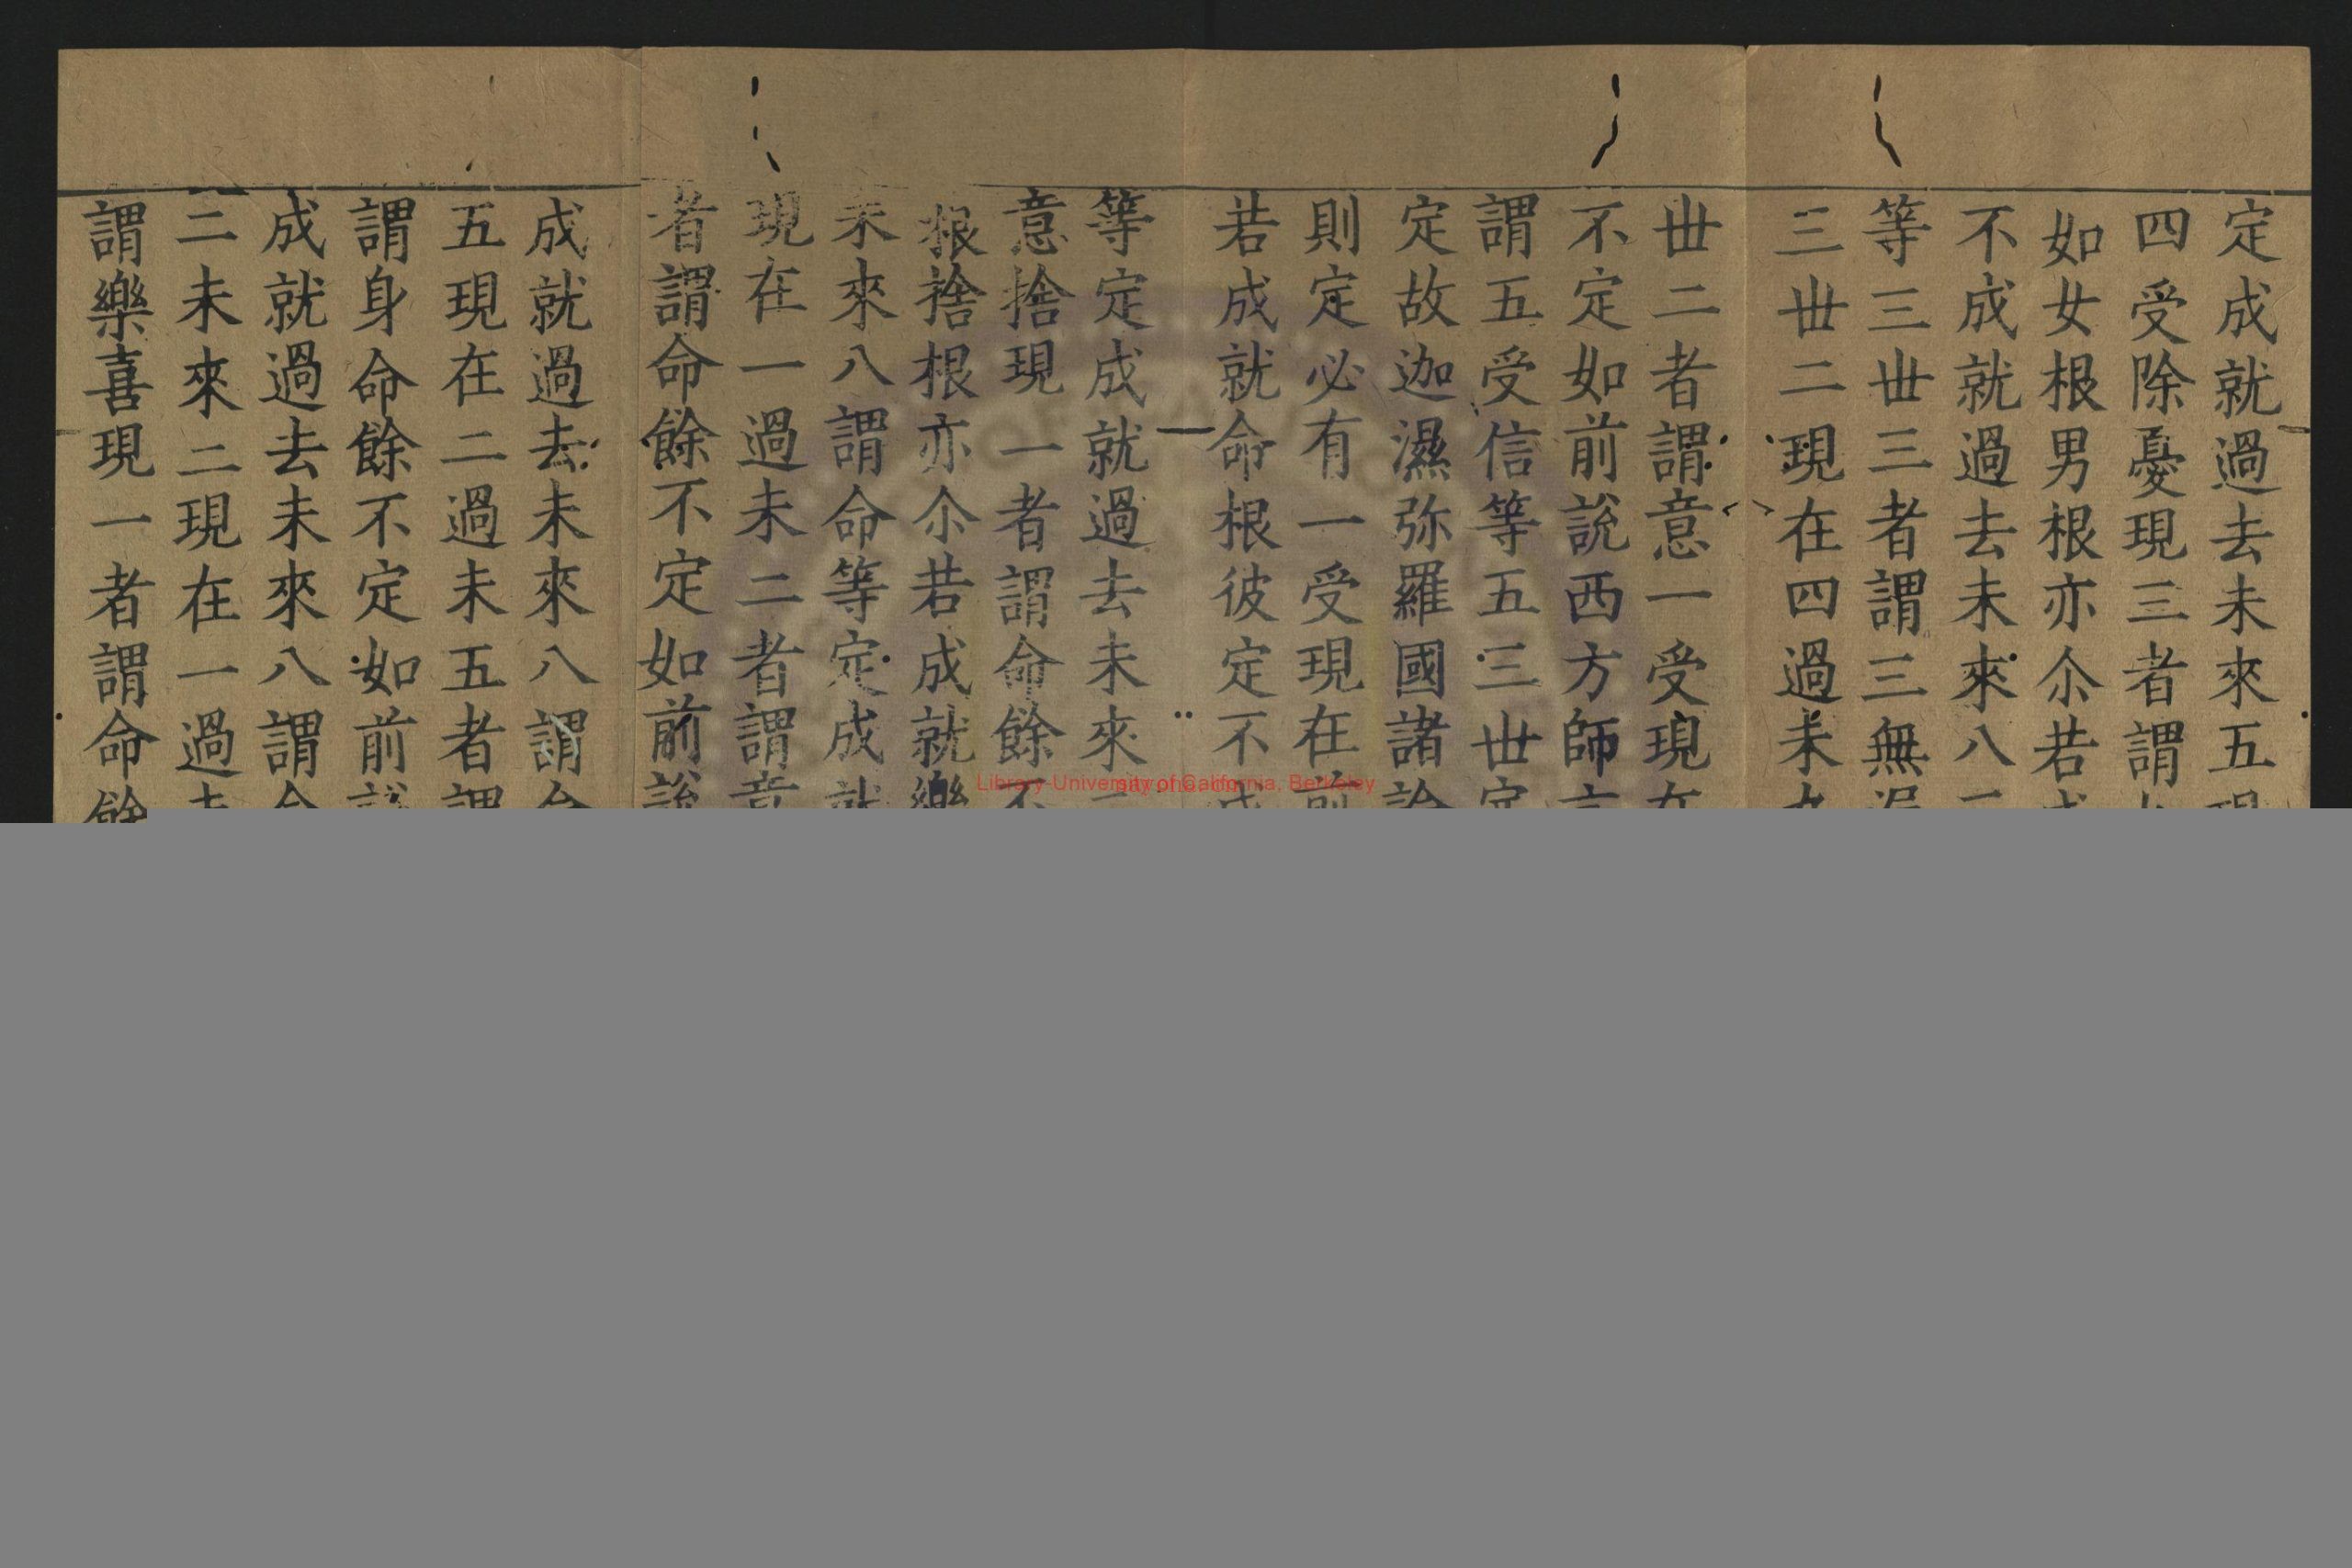 定成就過去未來五現
四受除憂現三者謂
如女根男根亦尒若成
不成就過去未來八
等三世三者謂三無漏
三世二現在四過未九
世二者謂意一受現在
不定如前說西方師言
謂五受信等五三世定
定故迦濕弥羅國諸論
則定必有一受現在前
若成就命根彼定不成
等定成就過去未來二
意捨現一者謂命餘不
根捨根亦尒若成就樂
未來八謂命等定成就
現在一過未二者謂意
者謂命餘不定如前說
成就過去未來八謂命
五現在二過未五者謂
謂身命餘不定如前說
成就過去未來八謂命
二未來二現在一過去
謂樂喜現一者謂命餘
Library-University of California, Berkeley